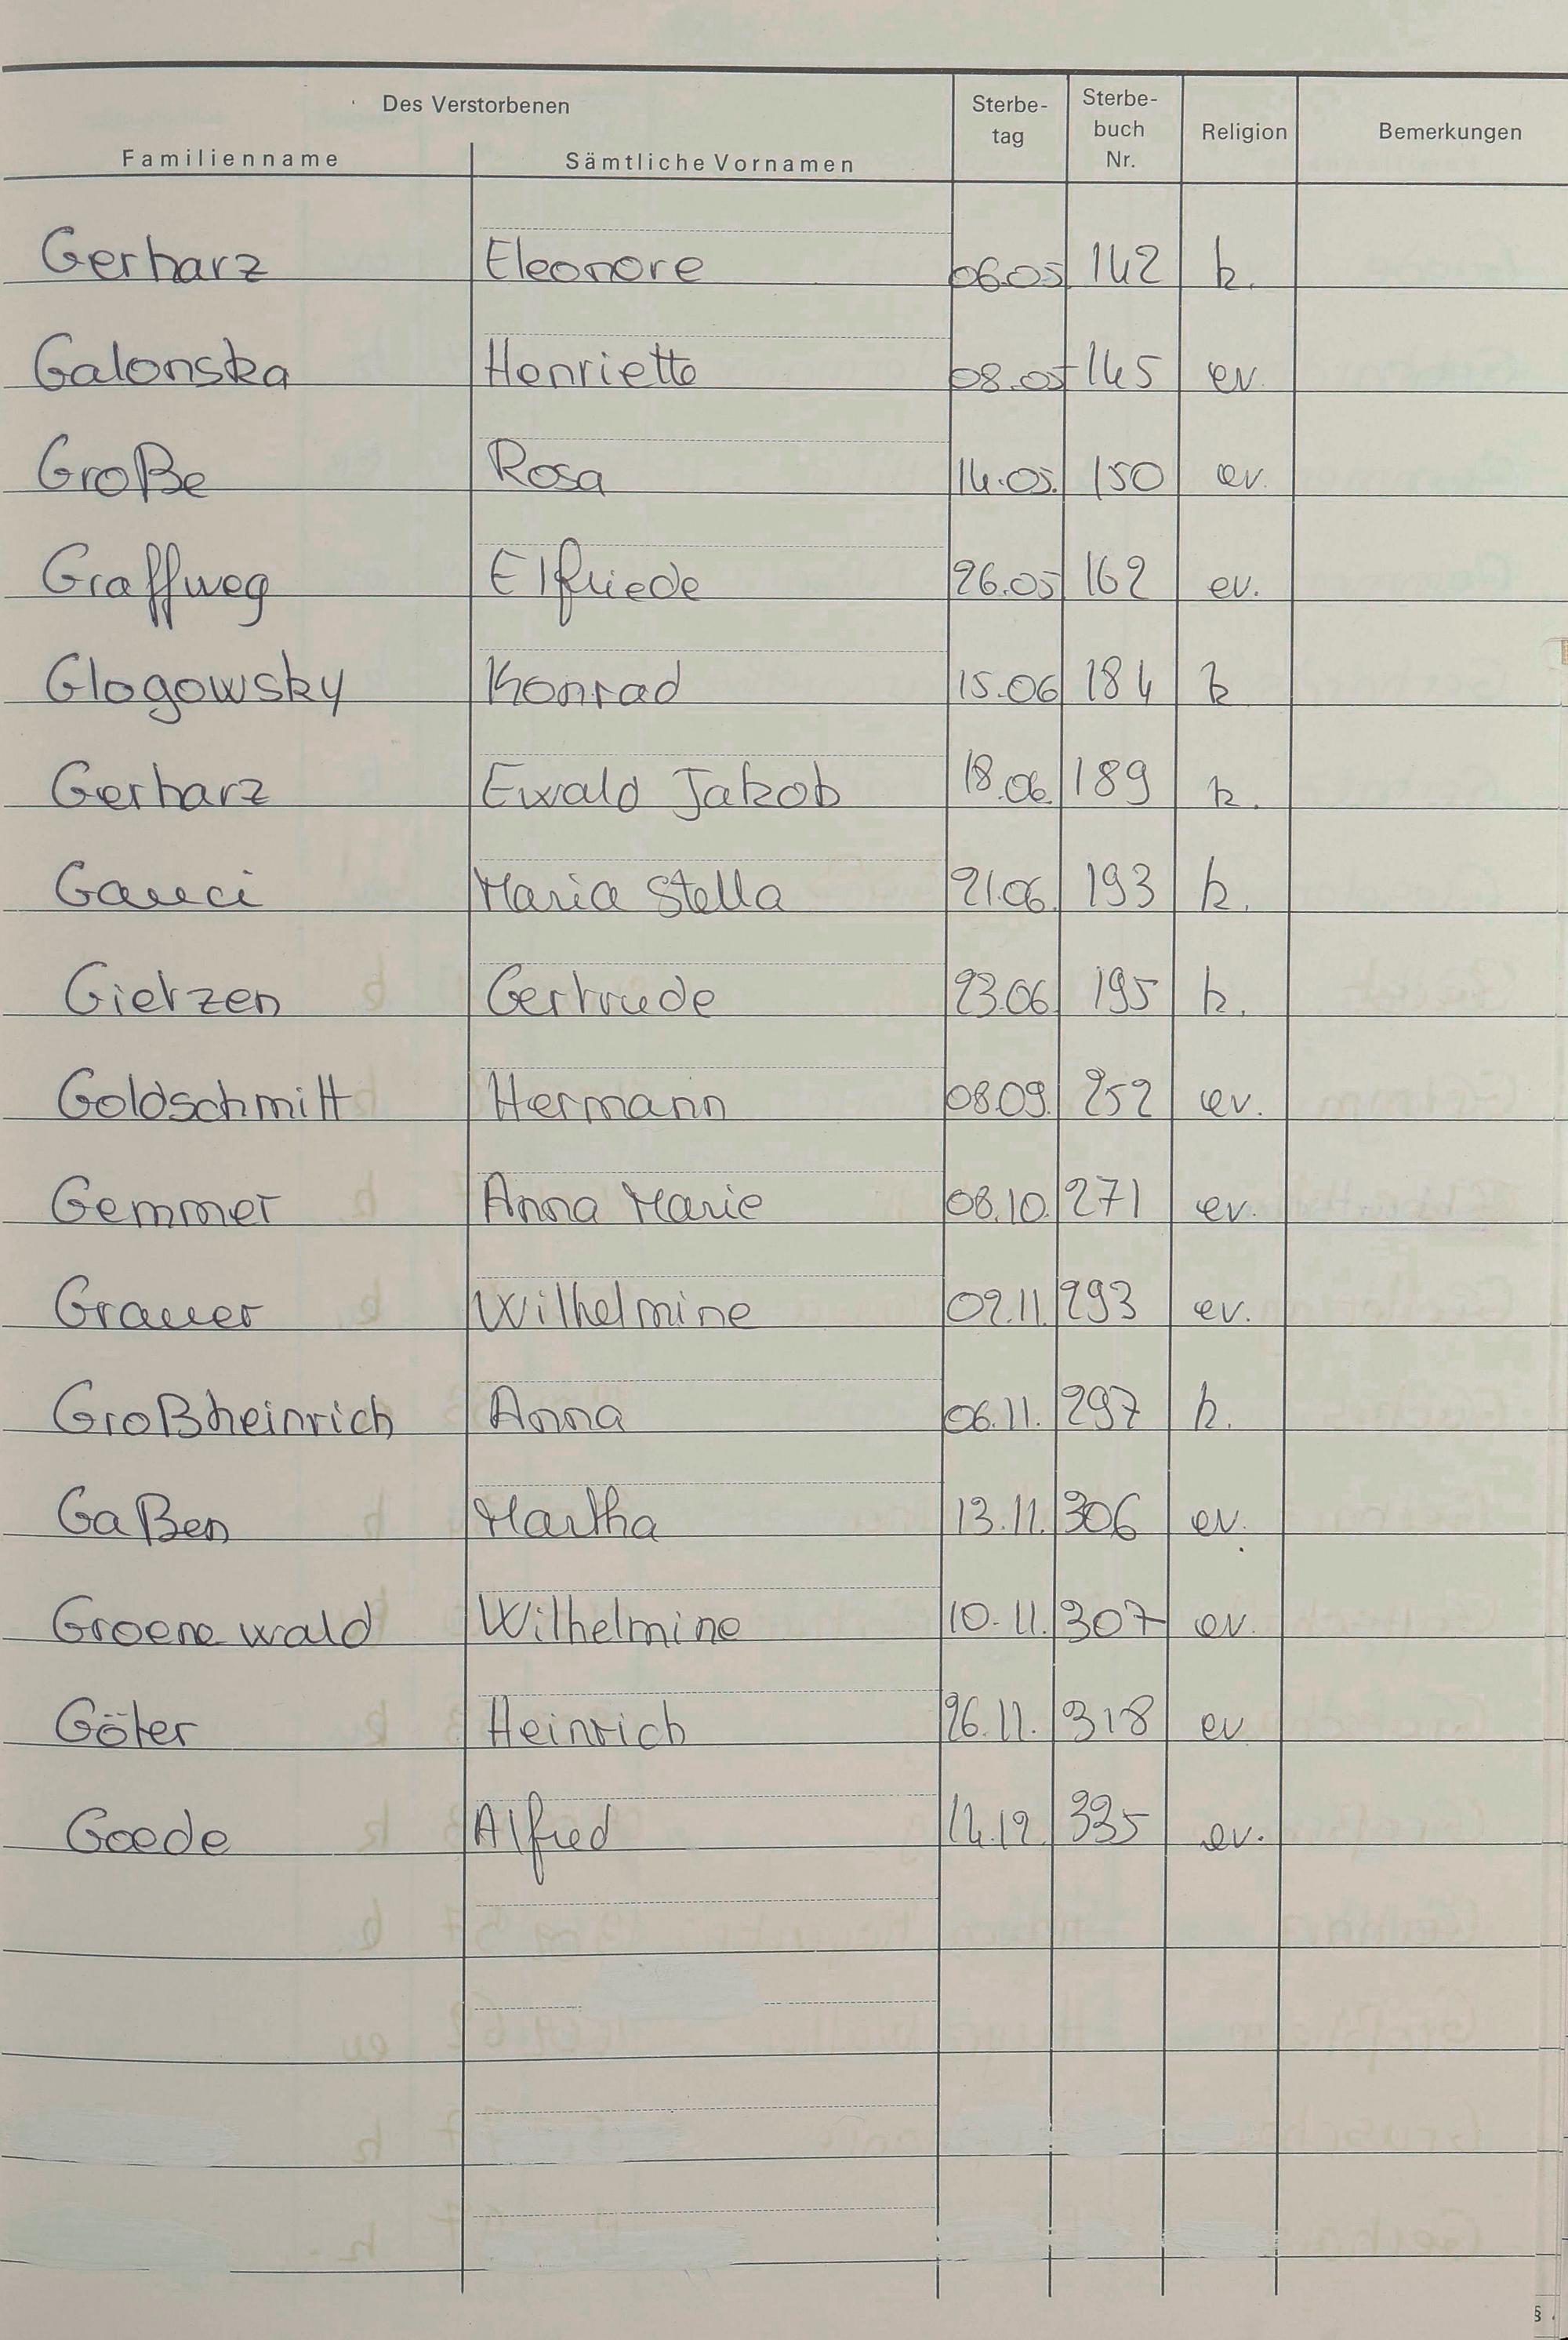 Des Verstorbenen
Familienname Sämtliche Vornamen Sterbe-tag Sterbe-buch Nr. Religion Bemerkungen
Gerharz Eleonore 06.05 142 k.
Galonska Henriette 08.05 145 ev.
Große Rosa 14.05. 150 ev.
Graffweg Elfriede 26.05 162 ev.
Glogowsky Konrad 15.06 184 k
Gerharz Ewald Jakob 18.06. 189 k.
Gauci Maria Stella 21.06. 193 k.
Gietzen Gertrude 23.06 195 k.
Goldschmitt Hermann 08.09. 252 ev.
Gemmer Anna Marie 08.10. 271 ev.
Grauer Wilhelmine 02.11. 293 ev.
Großheinrich Anna 06.11. 297 k.
Gaßen Martha 13.11. 306 ev.
Groenewald Wilhelmine 10.11. 307 ev.
Göter Heinrich 26.11. 318 ev
Goede Alfred 14.12. 335 ev.